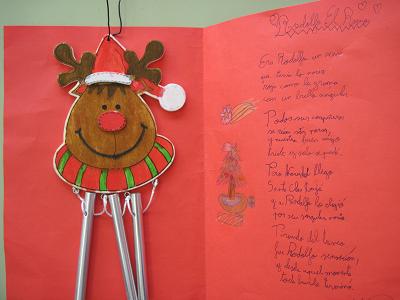 Rodolfo El Reno
Era Rodolfo un reno
que tenía la nariz
roja como la grana
con un brillo singular.
Todos sus compañeros
se reían sin parar,
y nuestro buen amigo
triste y solo se quedó.
Pero Navidad llegó
Santa Claus bajó
y a Rodolfo lo eligió
por su singular nariz.
Tirando del trineo
fue Rodolfo sensación,
y desde aquel momento
toda burla terminó.